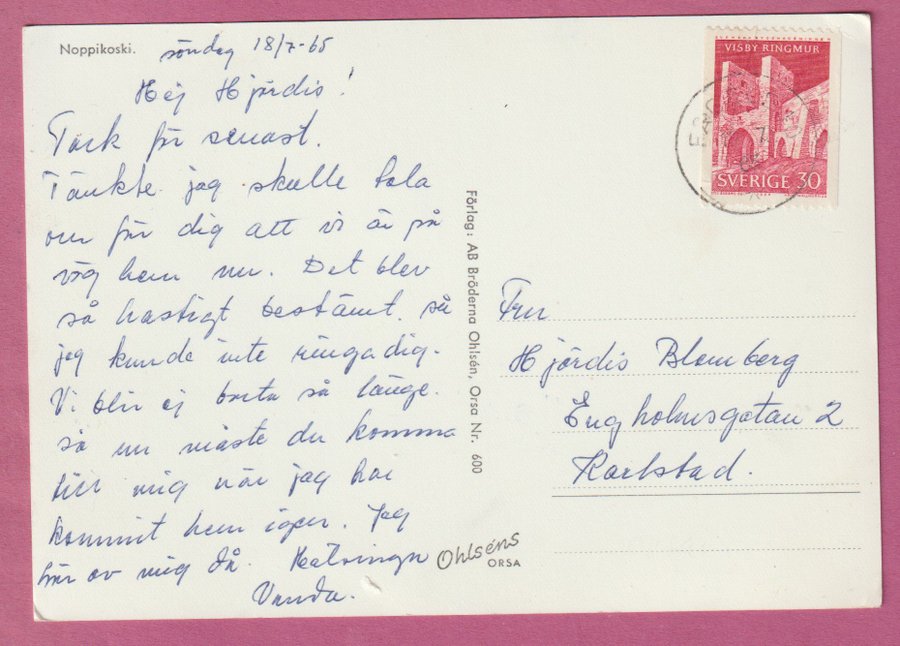 Noppikoski.
söndag 18/7-65
Hej Hjördis!
Tack för senast.
Tänkte jag skulle tala
om för dig att vi är på
väg hem nu. Det blev
så hastigt bestämt, så
jag kunde inte ringa dig.
Vi blir ej borta så länge.
så nu måste du komma
till mig när jag har
kommit hem igen. Jag
hör av mig då. Hälsningar
Vanda.
Förlag: AB Bröderna Ohlsén, Orsa Nr. 600
Ohlséns
ORSA
VISBY RINGMUR
SVERIGE 30
Fru
Hjördis Blomberg
Engholmsgatan 2
Karlstad.